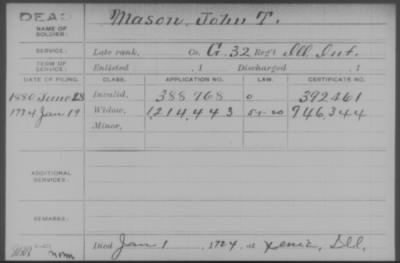 DEAD
NAME OF SOLDIER: Mason, John T.
SERVICE: Late rank, Co. G. 32 Reg't Ill Inf.
TERM OF SERVICE: Enlisted , 1 Discharged , 1
DATE OF FILING. CLASS. APPLICATION NO. LAW. CERTIFICATE NO.
1880 June 28 Invalid, 388768 0 392461
1924 Jan 19 Widow, 1,214,443 946,344
Minor,
ADDITIONAL SERVICES:
REMARKS:
Died Jan 1, 1924, at Xenia, Ill.